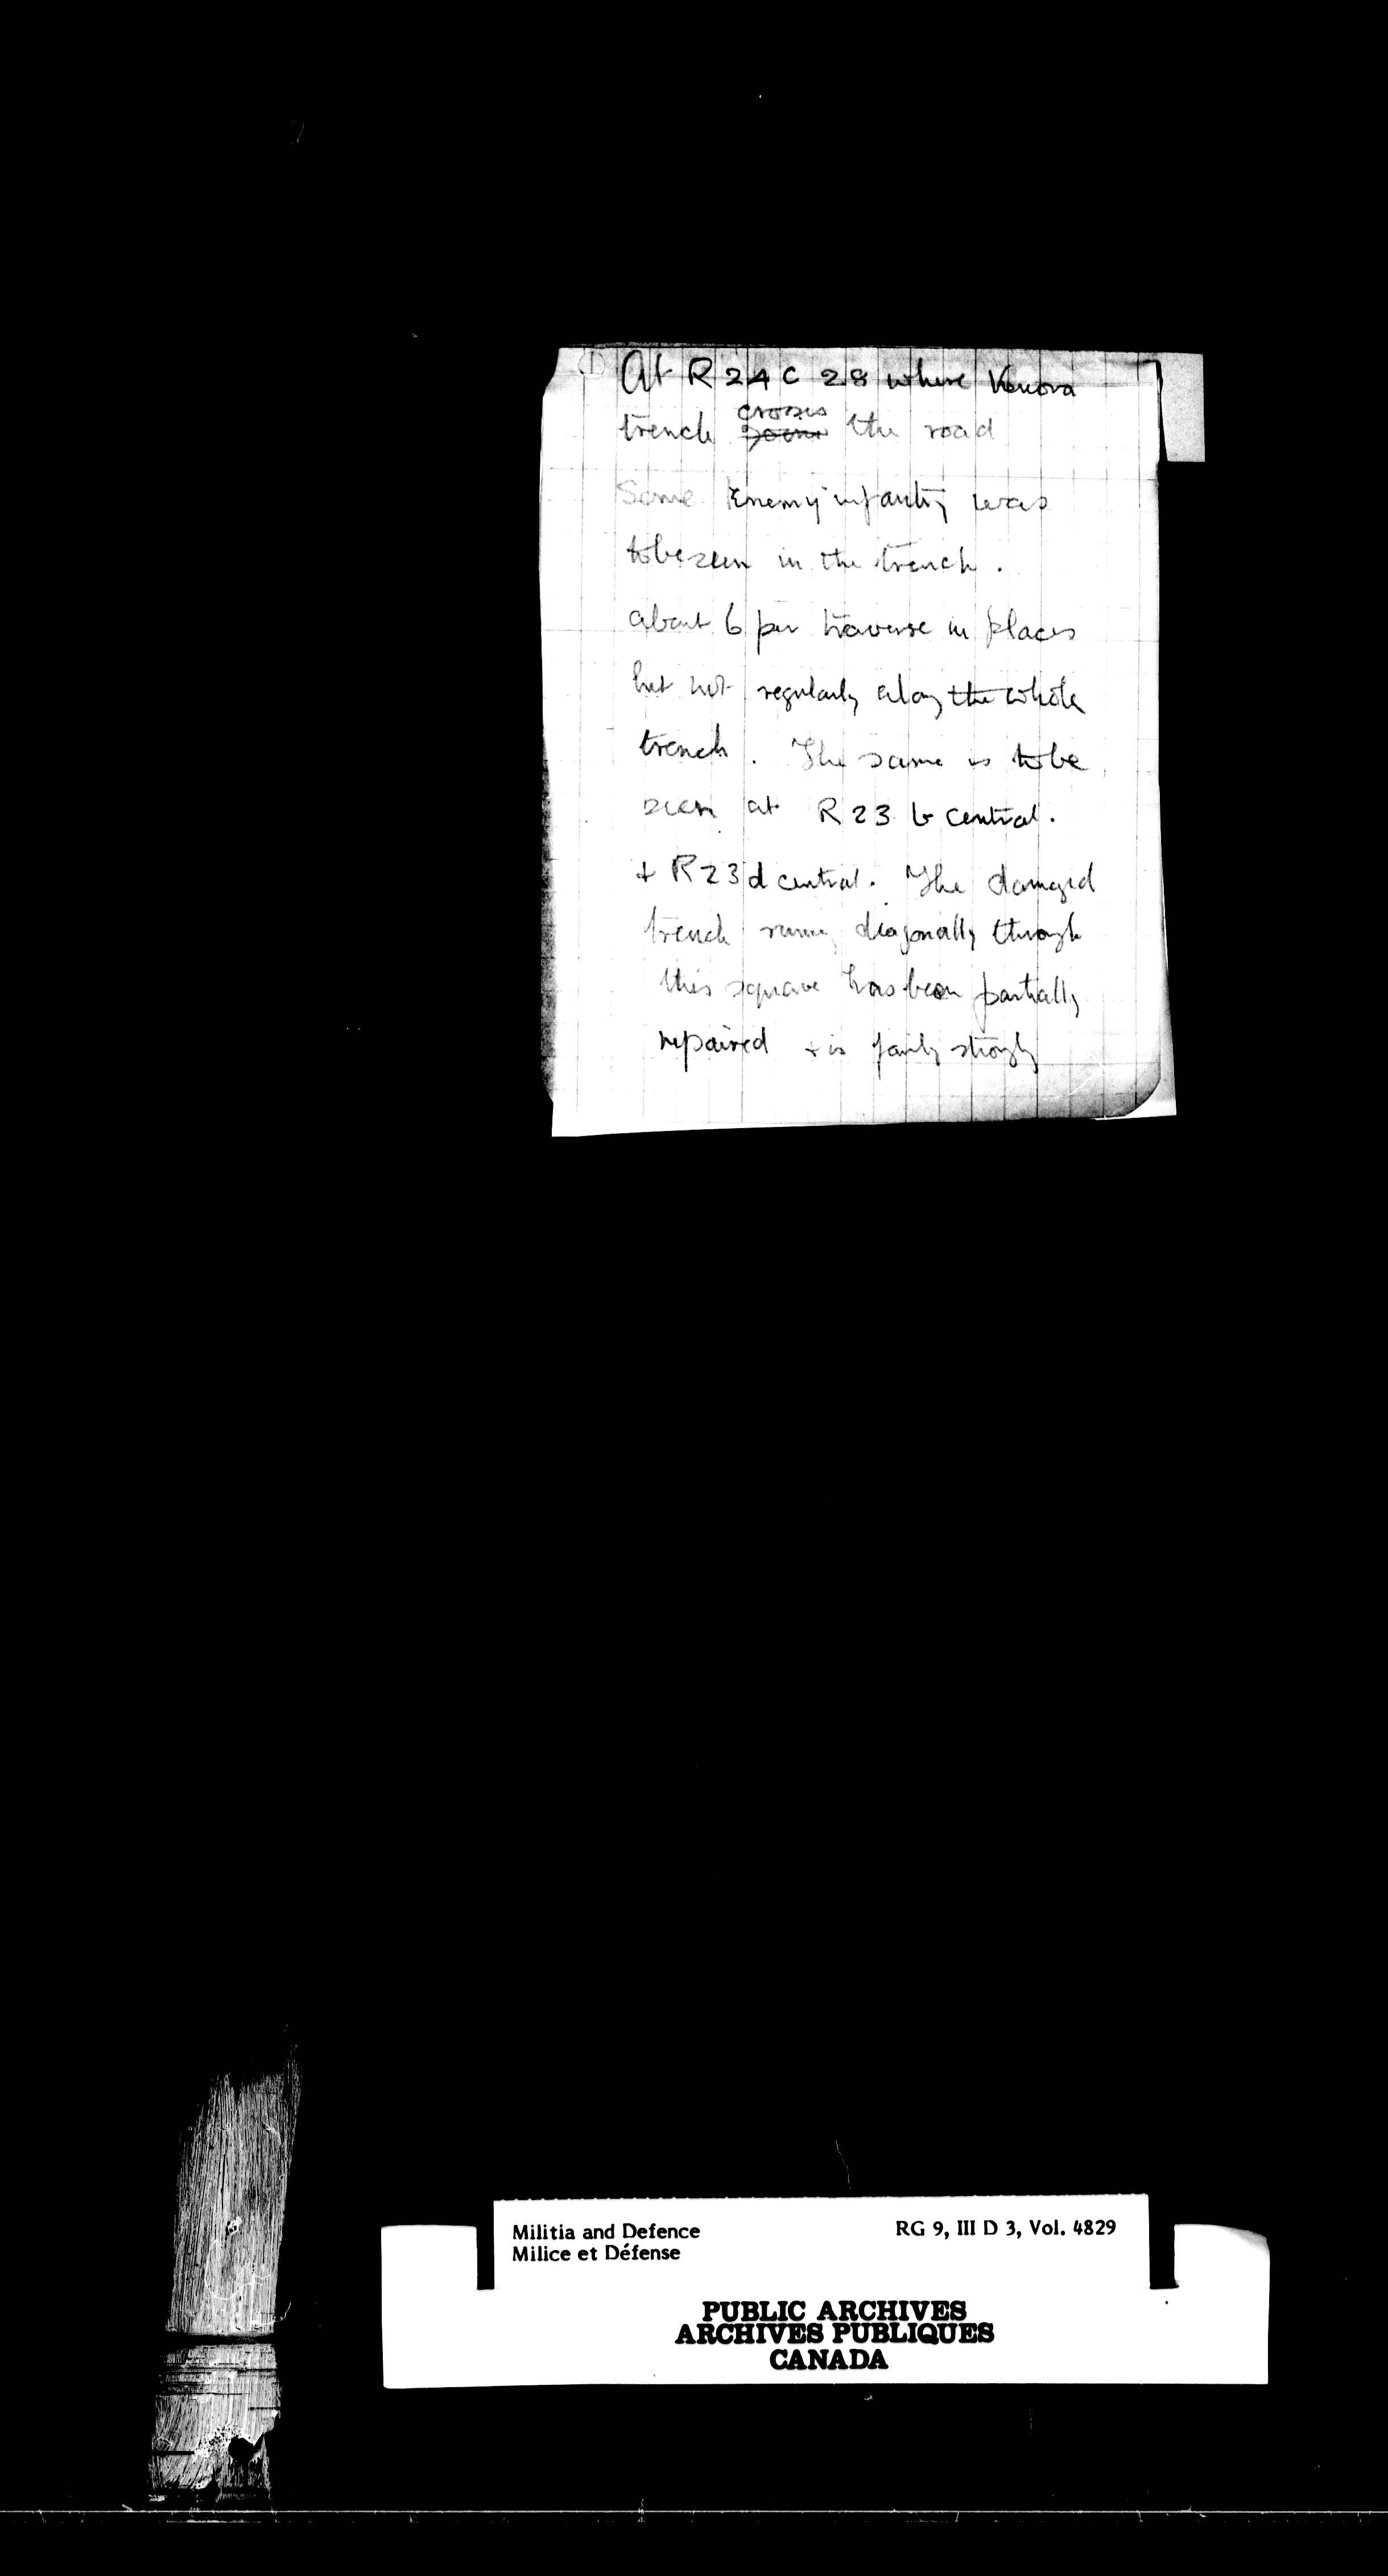 ① At R 24 C 28 where Kenora
trench crosses the road
Some Enemy infantry was
to be seen in the trench.
about 6 per traverse in places
but not regularly along the whole
trench. The same is to be
seen at R 23 b central.
+ R 23 d central. The damaged
trench running diagonally through
this square has been partially
repaired + is fairly strongly
Militia and Defence
Milice et Défense
RG 9, III D 3, Vol. 4829
PUBLIC ARCHIVES
ARCHIVES PUBLIQUES
CANADA